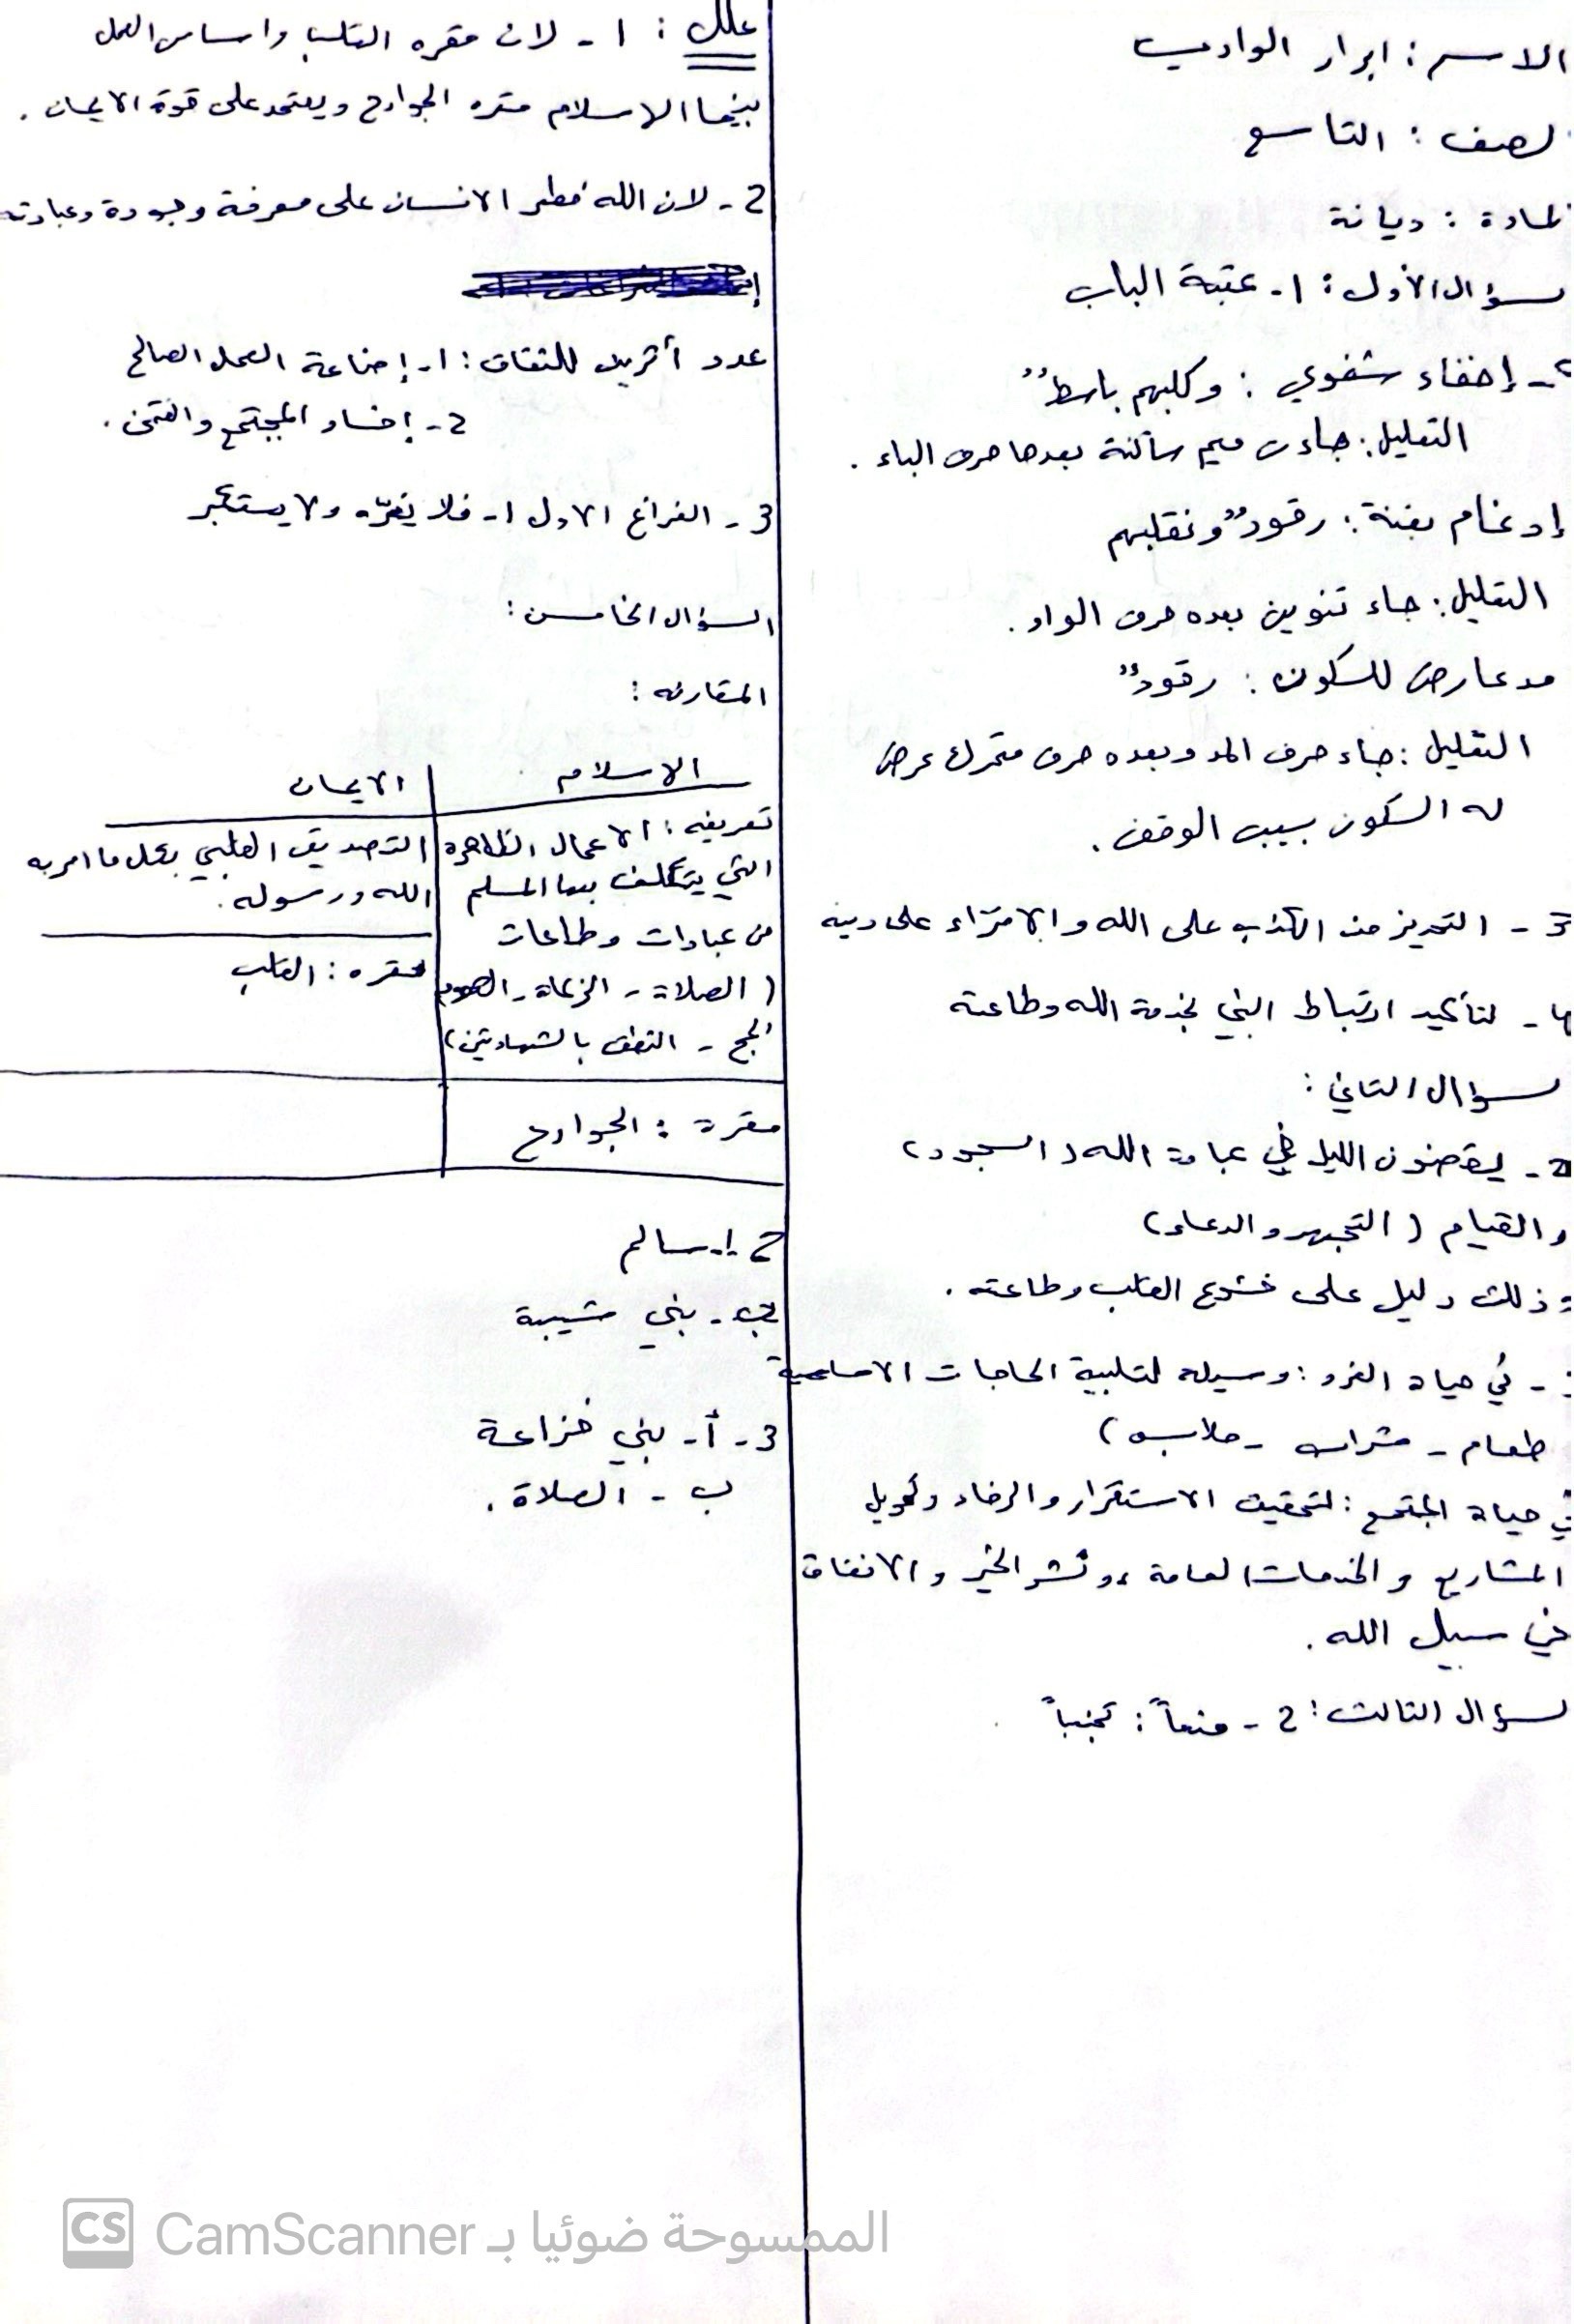 الاسم : ابرار الوادي
لصف : التاسع
لمادة : ديانة
سؤال الأول : 1 - عتبة الباب
2 - إخفاء شفوي : وكلبهم باسطٌ
التعليل : جاءت ميم ساكنة بعدها حرف الباء .
إدغام بغنة : رقودٌ ونقلبهم
التعليل : جاء تنوين بعده حرف الواو .
مد عارض للسكون : رقودٌ
التعليل : جاء حرف المد وبعده حرف متحرك عرض
له السكون بسبب الوقف .
3 - التحذير من الكذب على الله والافتراء على دينه
4 - لتأكيد ارتباط النبي بخدمة الله وطاعته
سؤال الثاني :
2 - يقضون الليل في عبادة الله ( السجود )
والقيام ( التجهد والدعاء )
وذلك دليل على خشوع القلب وطاعته .
- في حياة الفرد : وسيلة لتلبية الحاجات الاساسية
طعام - شراب - ملابس )
في حياة المجتمع : لتحقيق الاستقرار والرخاء وتمويل
المشاريع والخدمات العامة ، ونشر الخير والانفاق
في سبيل الله .
سؤال الثالث : 2 - : تجنباً
علل : 1 - لان مقره القلب واساس العمل
بينما الاسلام مقره الجوارح ويعتمد على قوة الايمان .
2 - لان الله فطر الانسان على معرفة وجودة وعبادته
عدد أثرين للنفاق : 1 - إضاعة العمل الصالح
2 - إفساد المجتمع والفتن .
3 - الفراغ الاول 1 - فلا يغترّ ولا يستكبر
السؤال الخامس :
المقارنه :
الاسلام | الايمان
تعريفه : الاعمال الظاهرة
التي يتكلف بها المسلم
من عبادات وطاعات
( الصلاة - الزكاة - الصوم
الحج - النطق بالشهادتين )
التصديق القلبي بكل ما امر به
الله ورسوله .
مقره : القلب
مقرة : الجوارح
2 - أ - سالم
ب - بني شيبة
3 - أ - بني خزاعة
ب - الصلاة .
CS الممسوحة ضوئيا بـ CamScanner